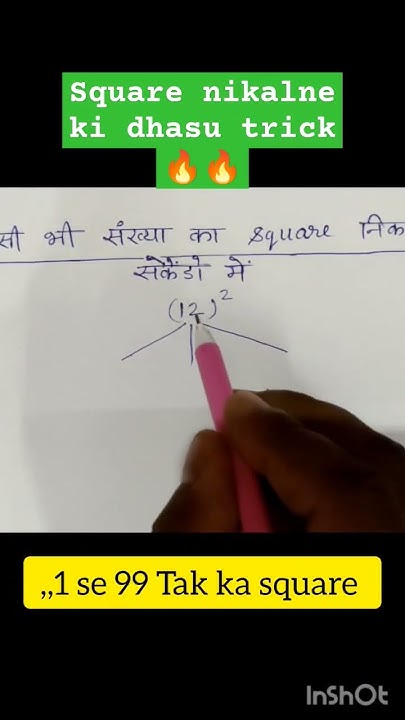 Square nikalne
ki dhasu trick
🔥🔥
सी भी संख्या का Square निक
सेकेंडो में
(12)²
,,1 se 99 Tak ka square
InShOt